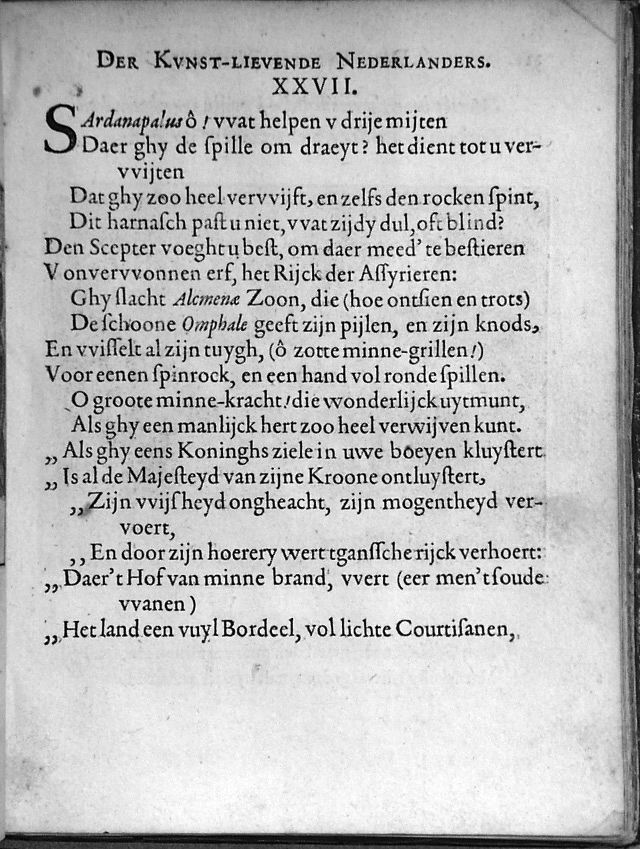 DER KVNST-LIEVENDE NEDERLANDERS.
XXVII.
SArdanapalus ô! vvat helpen v drije mijten
Daer ghy de ſpille om draeyt? het dient tot u ver-
vvijten
Dat ghy zoo heel vervvijft, en zelfs den rocken ſpint,
Dit harnaſch paſt u niet, vvat zijdy dul, oft blind?
Den Scepter voeght u beſt, om daer meed' te beſtieren
V onvervvonnen erf, het Rijck der Aſſyrieren:
Ghy ſlacht Alcmenæ Zoon, die (hoe ontſien en trots)
De ſchoone Omphale geeft zijn pijlen, en zijn knods,
En vviſſelt al zijn tuygh, (ô zotte minne-grillen!)
Voor eenen ſpinrock, en een hand vol ronde ſpillen.
O groote minne-kracht! die wonderlijck uytmunt,
Als ghy een manlijck hert zoo heel verwijven kunt.
„Als ghy eens Koninghs ziele in uwe boeyen kluyſtert
„Is al de Majeſteyd van zijne Kroone ontluyſtert,
„Zijn vvijſheyd ongheacht, zijn mogentheyd ver-
voert,
„En door zijn hoerery wert tganſſche rijck verhoert:
„Daer't Hof van minne brand, vvert (eer men't ſoude
vvanen)
„Het land een vuyl Bordeel, vol lichte Courtiſanen,